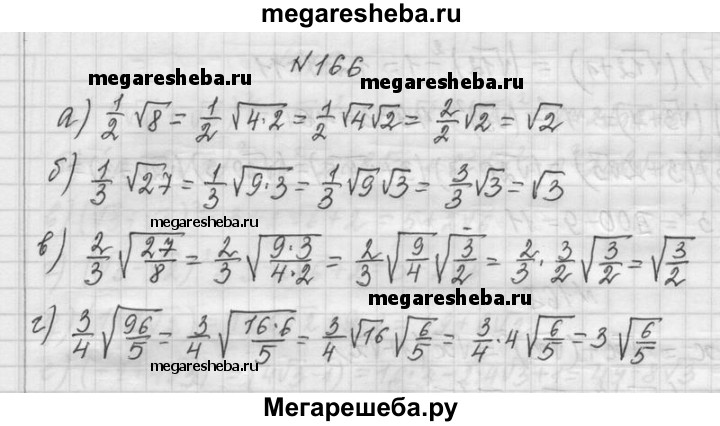 megaresheba.ru
№166
megaresheba.ru
а) 1/2 √8 = 1/2 √(4·2) = 1/2 √4 √2 = 2/2 √2 = √2
б) 1/3 √27 = 1/3 √(9·3) = 1/3 √9 √3 = 3/3 √3 = √3
megaresheba.ru
в) 2/3 √(27/8) = 2/3 √((9·3)/(4·2)) = 2/3 √(9/4) √(3/2) = 2/3 · 3/2 √(3/2) = √(3/2)
megaresheba.ru
г) 3/4 √(96/5) = 3/4 √((16·6)/5) = 3/4 √16 √(6/5) = 3/4 · 4 √(6/5) = 3 √(6/5)
megaresheba.ru
Мегарешеба.ру